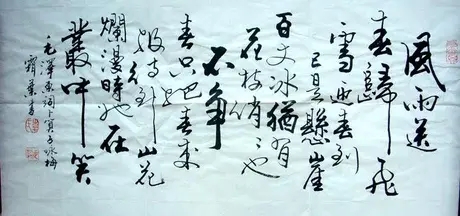 風雨送
春歸飛
雪迎春到
已是懸崖
百丈冰猶有
花枝俏〻也
不争
春只把春来
报待到山花
爛漫時她在
叢中笑
毛澤东詞卜算子咏梅